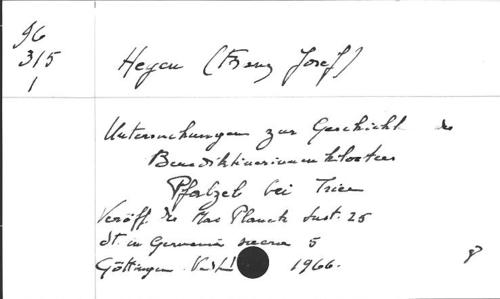 96
315
1
Heyen (Franz Josef)
Untersuchungen zur Geschicht des
Benediktinerinnenklosters
Pfalzel bei Trier
Veröff. des Max Planck Inst. 25
St. in Germania sacra 5
Göttingen. 1966.
8